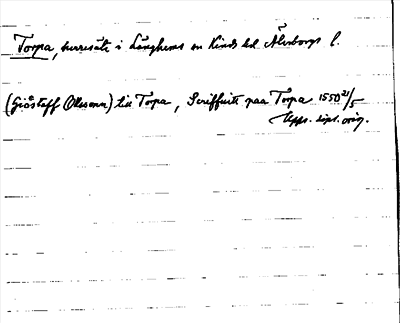 Torpa, herresäte i Länghems sn Kinds hd Älvsborgs l.
(Giöstaff Olsson) till Torpa, Scriffuit paa Torpa 1550 21/5
Upps. dipl. orig.